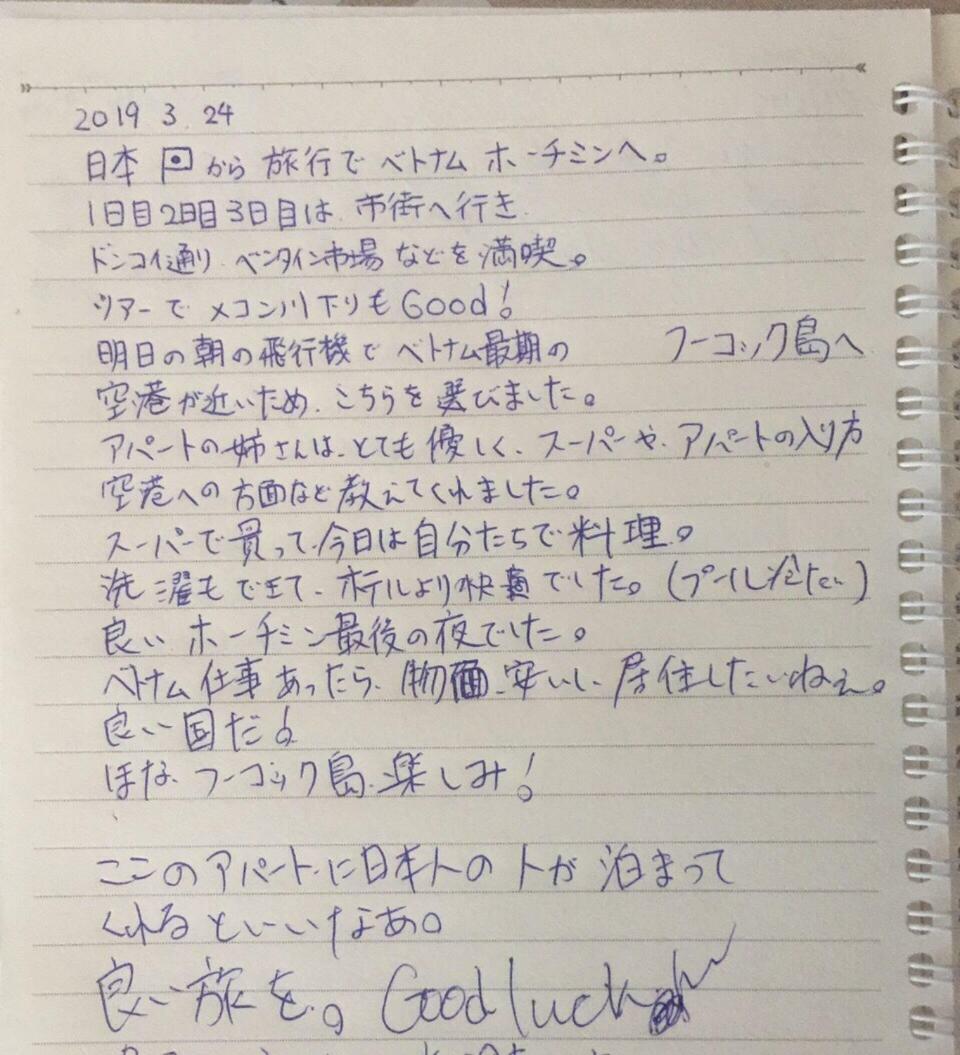 2019 3. 24
日本 から 旅行で ベトナム ホーチミンへ。
1日目2日目3日目は、市街へ行き
ドンコイ通り、ベンタイン市場 などを 満喫。
ツアーで メコン川下りも Good!
明日の朝の飛行機で ベトナム最期の フーコック島へ
空港が近いため、こちらを 選びました。
アパートの姉さんは、とても 優しく、スーパーや、アパートの入り方
空港への 方面など 教えてくれました。
スーパーで買って、今日は自分たちで料理。
洗濯もできて、ホテルより快適でした。(プール冷たい)
良い ホーチミン最後の夜でした。
ベトナム仕事あったら、物価 安いし、居住したいねぇ。
良い国だ!
ほな、フーコック島、楽しみ!
ここのアパートに日本人の 人が 泊まって
くれる といいなあ。
良い旅を。Good luck